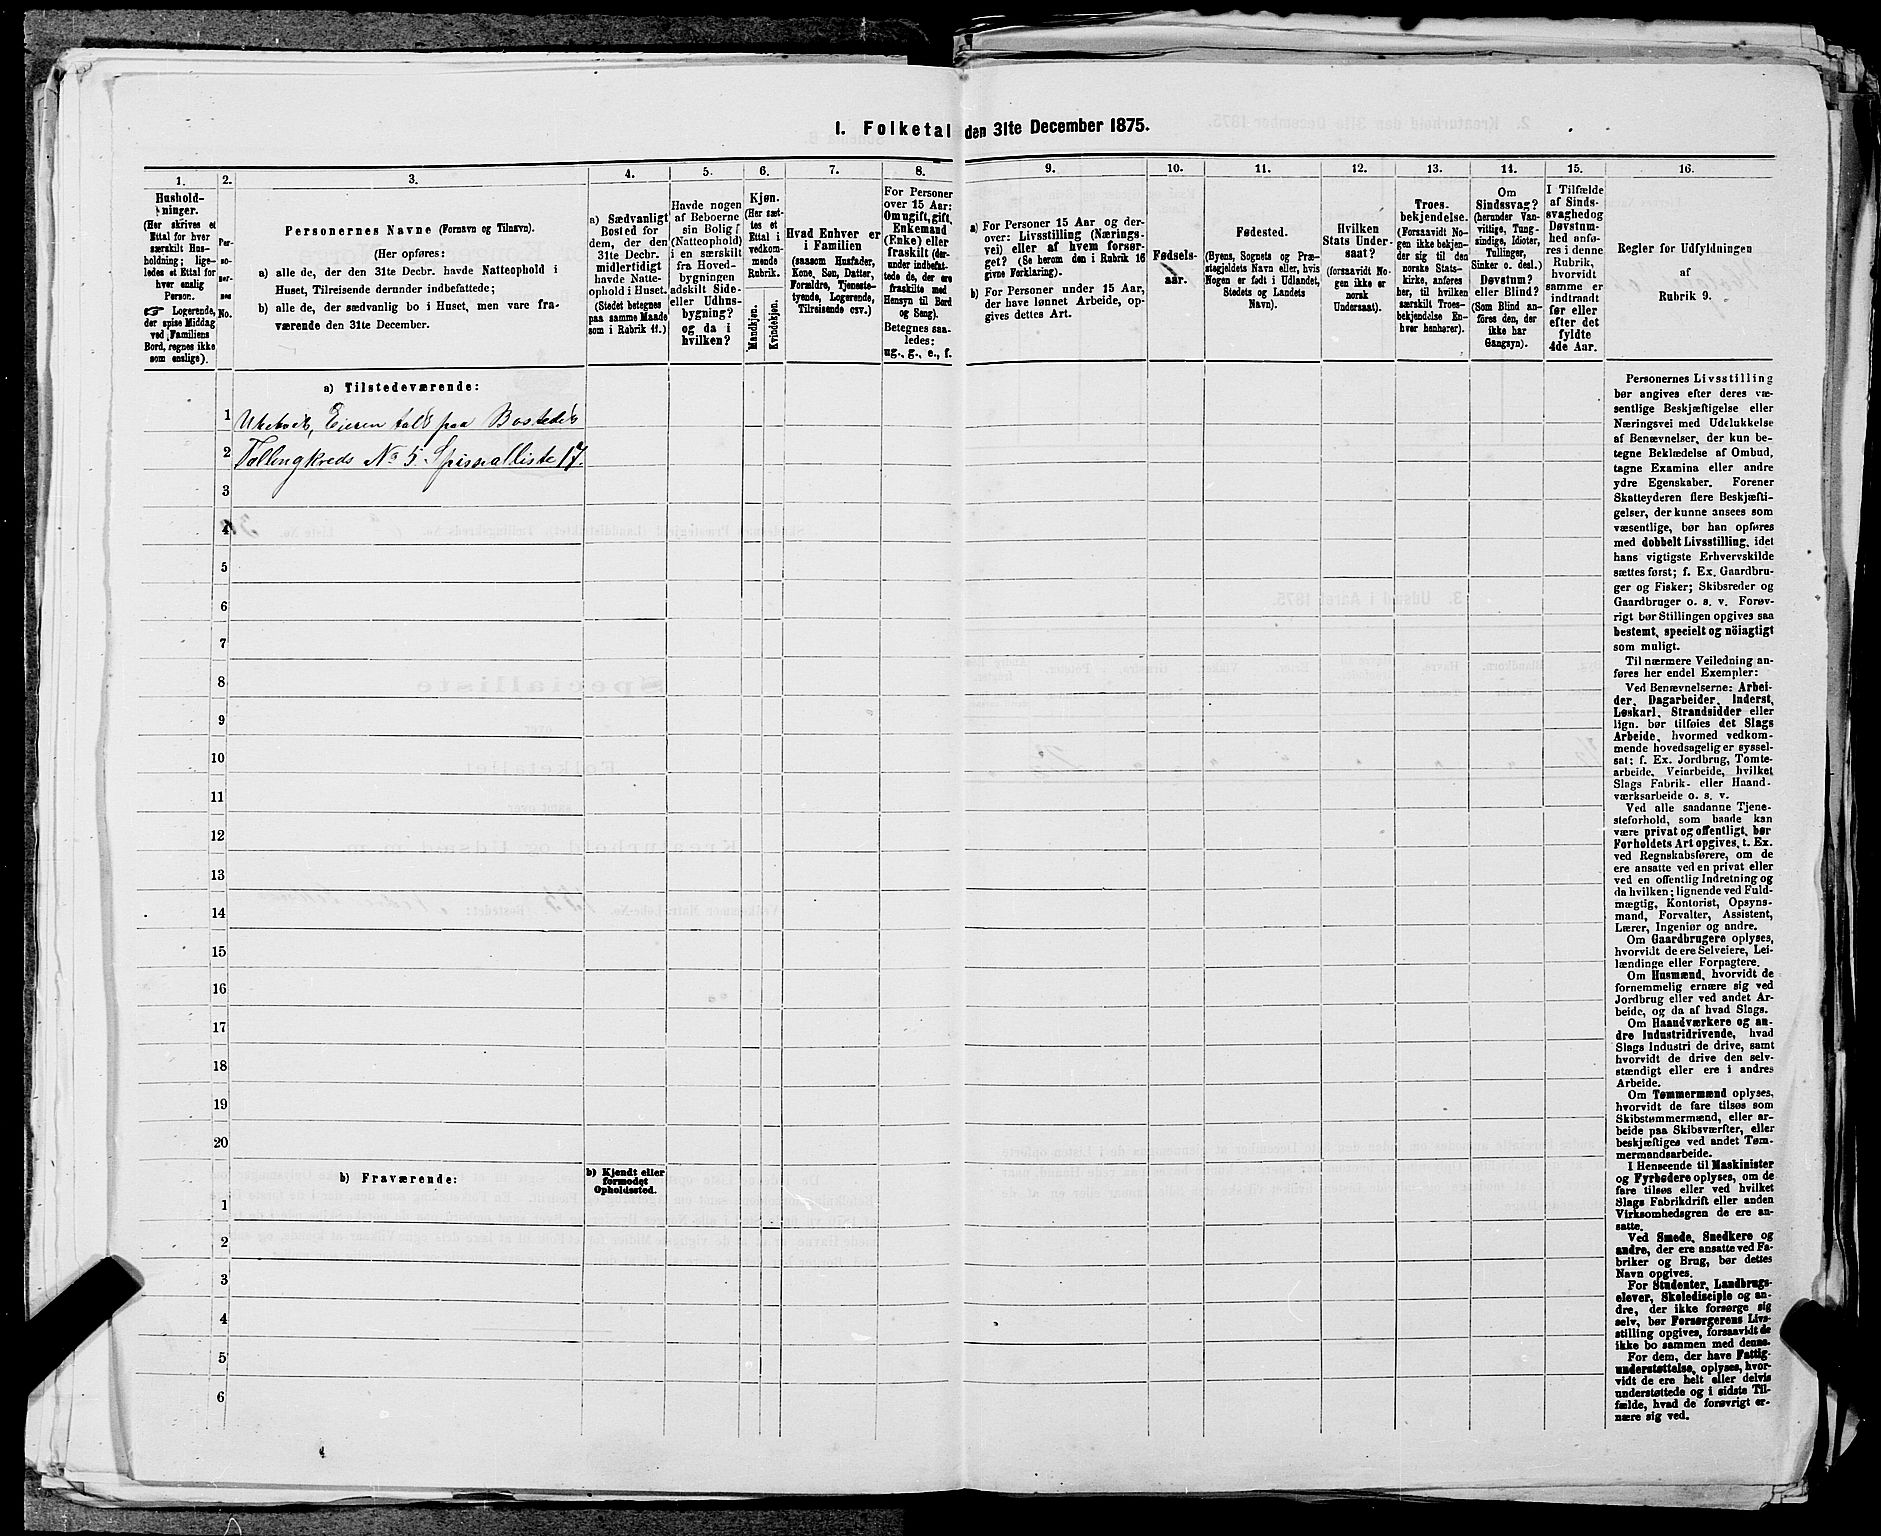 1. Folketal den 31te December 1875.
1.
Hushold-
ninger.
(Her skrives et
Ettal for hver
særskilt Hus-
holdning; lige-
ledes et Ettal for
hver enslig
Person.
Logerende,
der spise Middag
ved Familiens
Bord, regnes ikke
som enslige).
2.
Per-
so-
ner-
nes
No.
3.
Personernes Navne (Fornavn og Tilnavn).
(Her opføres:
a) alle de, der den 31te Decbr. havde Natteophold i
Huset, Tilreisende derunder indbefattede;
b) alle de, der sædvanlig bo i Huset, men vare fra-
værende den 31te December.
4.
a) Sædvanligt
Bosted for
dem, der den
31te Decbr.
midlertidigt
havde Natte-
ophold i Huset.
(Stedet betegnes
paa samme Maade
som i Rubrik 11.)
5.
Havde nogen
af Beboerne
sin Bolig
(Natteophold)
i en særskilt
fra Hoved-
bygningen
adskilt Side-
eller Udhus-
bygning?
og da i
hvilken?
6.
Kjøn.
(Her sæt-
tes et
Ettal i
vedkom-
mende
Rubrik.
Mandkjøn.
Kvindekjøn.
7.
Hvad Enhver er
i Familien
(saasom Husfader,
Kone, Søn, Datter,
Forældre, Tjeneste-
tyende, Logerende,
Tilreisende osv.)
8.
For Personer
over 15 Aar:
Om ugift, gift,
Enkemand
(Enke) eller
fraskilt (der-
under indbefat-
tede de, der ere
fraskilte med
Hensyn til Bord
og Seng).
Betegnes saa-
ledes:
ug., g., e., f.
9.
a) For Personer 15 Aar og der-
over: Livsstilling (Nærings-
vei) eller af hvem forsør-
get? (Se herom den i Rubrik 16
givne Forklaring).
b) For Personer under 15 Aar,
der have lønnet Arbeide, op-
gives dettes Art.
10.
Fødsels-
aar.
11.
Fødested.
(Byens, Sognets og Præ-
stegjeldets Navn eller, hvis
Nogen er født i Udlandet,
Stedets og Landets
Navn).
12.
Hvilken
Stats Under-
saat?
(forsaavidt No-
gen ikke er
norsk
Undersaat).
13.
Troes-
bekjendelse.
(Forsaavidt No-
gen ikke bekjen-
der sig til den
norske Stats-
kirke, anføres
her, til hvilken
særskilt Troes-
bekjendelse En-
hver henhører).
14.
Om
Sindssvag?
(herunder Van-
vittige, Tung-
sindige, Idioter,
Tullinger,
Sinker o. desl.)
Døvstum?
eller Blind?
(Som Blind an-
føres den, der
ikke har
Gangsyn).
15.
I Tilfælde
af Sinds-
svaghed og
Døvstum-
hed anfø-
res i denne
Rubrik,
hvorvidt
samme er
indtraadt
før eller
efter det
fyldte
4de Aar.
16.
Regler for Udfyldningen
af
Rubrik 9.
a) Tilstedeværende:
1 Eieren talt paa Bostedet
2 Tællingkreds No 5 Specialliste 17.
3
4
5
6
7
8
9
10
11
12
13
14
15
16
17
18
19
20
b) Fraværende:
b) Kjendt eller
formodet
Opholdssted.
1
2
3
4
5
6
Personernes Livsstilling
bør angives efter deres væ-
sentlige Beskjæftigelse eller
Næringsvei med Udelukkelse
af Benævnelser, der kun be-
tegne Beklædelse af Ombud,
tagne Examina eller andre
ydre Egenskaber. Forener
Skatteyderen flere Beskjæfti-
gelser, der kunne ansees som
væsentlige, bør han opføres
med dobbelt Livsstilling, idet
hans vigtigste Erhvervskilde
sættes først; f. Ex. Gaardbru-
ger og Fisker; Skibsreder og
Gaardbruger o. s. v. Forøv-
rigt bør Stillingen opgives saa
bestemt, specielt og nöiagtigt
som muligt.
Til nærmere Veiledning an-
føres her endel Exempler:
Ved Benævnelserne: Arbei-
der, Dagarbeider, Inderst,
Løskarl, Strandsidder eller
lign. bør tilføies det Slags
Arbeide, hvormed vedkom-
mende hovedsagelig er syssel-
sat; f. Ex. Jordbrug, Tomte-
arbeide, Veiarbeide, hvilket
Slags Fabrik- eller Haand-
værksarbeide o. s. v.
Ved alle saadanne Tjene-
steforhold, som baade kan
være privat og offentligt, bør
Forholdets Art opgives, t. Ex.
ved Regnskabsførere, om de
ere ansatte ved en privat eller
ved en offentlig Indretning og
da hvilken; lignende ved Fuld-
mægtig, Kontorist, Opsyns-
mand, Forvalter, Assistent,
Lærer, Ingeniør og andre.
Om Gaardbrugere oplyses,
hvorvidt de ere Selveiere, Lei-
lændinge eller Forpagtere.
Om Husmænd, hvorvidt de
fornemmelig ernære sig ved
Jordbrug eller ved andet Ar-
beide, og da af hvad Slags.
Om Haandværkere og an-
dre Industridrivende, hvad
Slags Industri de drive, samt
hvorvidt de drive den selv-
stændigt eller ere i andres
Arbeide.
Om Tømmermænd oplyses,
hvorvidt de fare tilsøs som
Skibstømmermænd, eller ar-
beide paa Skibsværfter, eller
beskjæftiges ved andet Tøm-
mermandsarbeide.
I Henseende til Maskinister
og Fyrbødere oplyses, om de
fare tilsøs eller ved hvilket
Slags Fabrikdrift eller anden
Virksomhedsgren de ere an-
satte.
Ved Smede, Snedkere og
andre, der ere ansatte ved Fa-
briker og Brug, bør dettes
Navn opgives.
For Studenter, Landbrugs-
elever, Skoledisciple og an-
dre, der ikke forsørge sig
selv, bør Forsørgerens Livs-
stilling opgives, forsaavidt de
ikke bo sammen med denne.
For dem, der have Fattig-
understøttelse, oplyses, hvor-
vidt de ere helt eller delvis
understøttede og i sidste Til-
fælde, hvad de forøvrigt er-
nære sig ved.